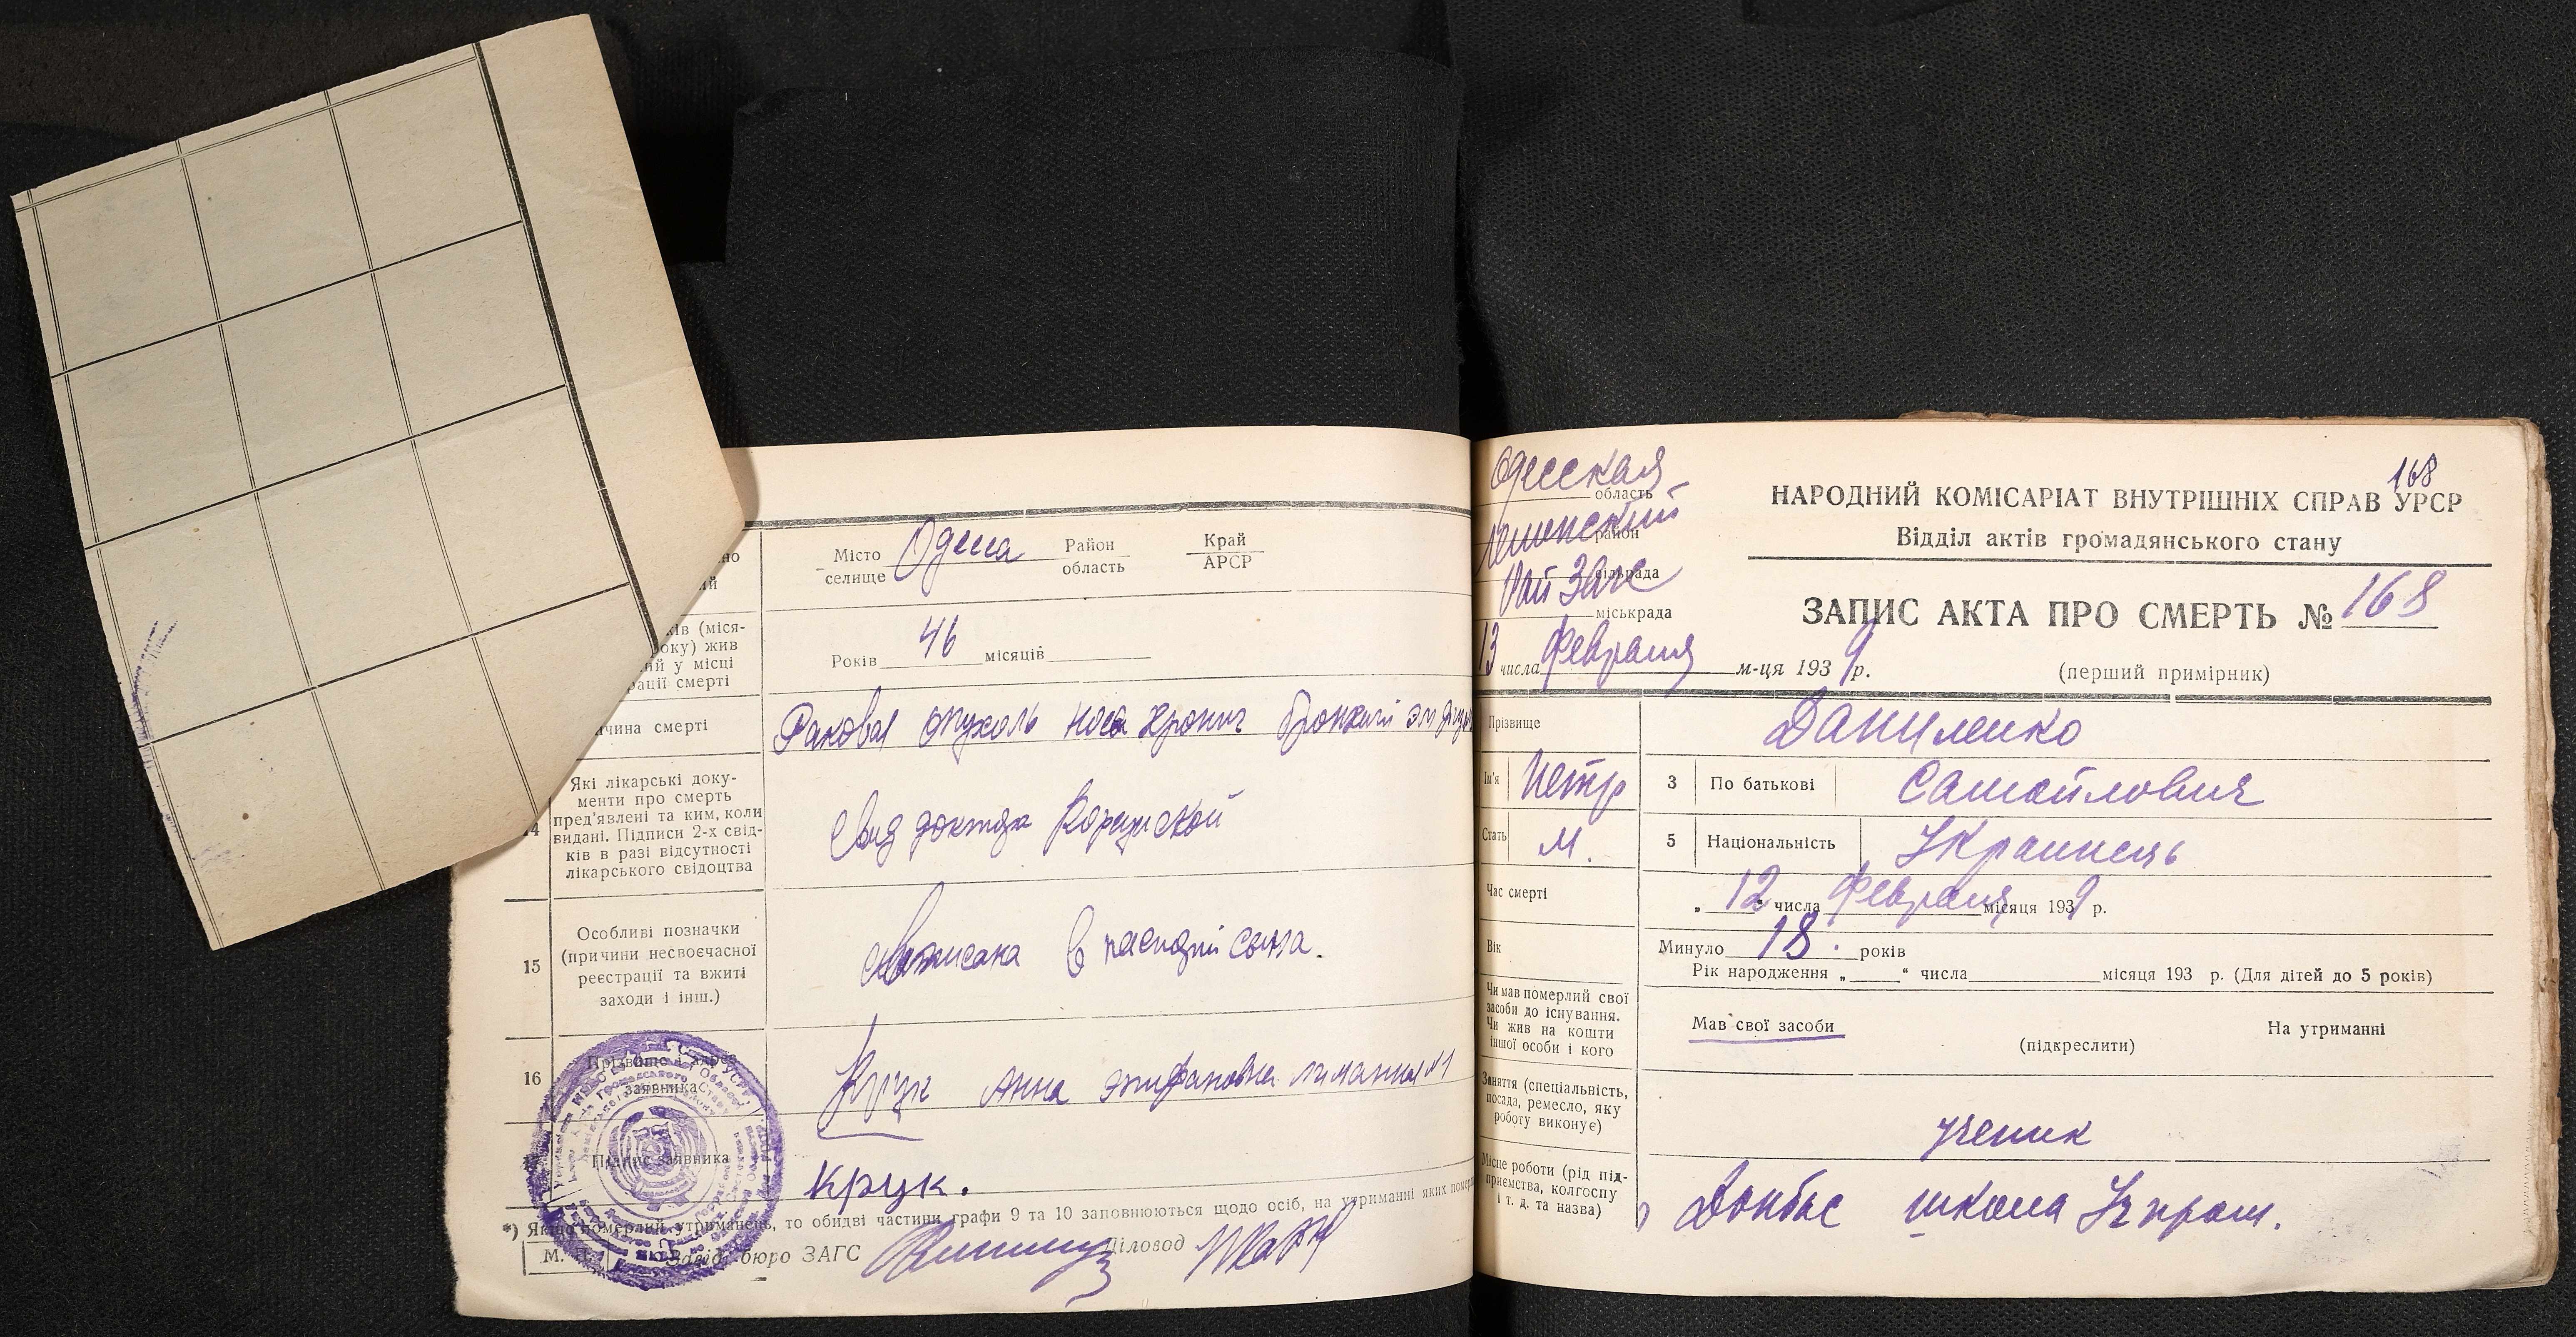 но
ий
Місто селище Одесса Район область Край АРСР
ків (міся-
оку) жив
ий у місці
рації смерті
Років 46 місяців
чина смерті
Раковая опухоль носа хронич бронхит
14
Які лікарські доку-
менти про смерть
пред'явлені та ким, коли
видані. Підписи 2-х свід-
ків в разі відсутності
лікарського свідоцтва
свид доктора
15
Особливі позначки
(причини несвоєчасної
реєстрації та вжиті
заходи і інш.)
в сына.
16
Прізвище і адрес
заявника
Крук Анна Епифановна
Підпис заявника
Крук.
*) Якщо померлий утриманець, то обидві частини графи 9 та 10 заповнюються щодо осіб, на утриманні яких помер
М. П. Завід. бюро ЗАГС Діловод
168
Одесская область
Ленинский район
сільрада
Рай Загс
міськрада
13 числа Февраля м-ця 1939 р.
НАРОДНИЙ КОМІСАРІАТ ВНУТРІШНІХ СПРАВ УРСР
Відділ актів громадянського стану
ЗАПИС АКТА ПРО СМЕРТЬ № 168
(перший примірник)
Прізвище Даниленко
Ім'я Петр 3 По батькові Самойлович
Стать М. 5 Національність Украинець
Час смерті „12" числа Февраля місяця 1939 р.
Вік Минуло 18. років
Рік народження „ “ числа місяця 193 р. (Для дітей до 5 років)
Чи мав померлий свої
засоби до існування.
Чи жив на кошти
іншої особи і кого
Мав свої засоби На утриманні
(підкреслити)
Заняття (спеціальність,
посада, ремесло, яку
роботу виконує)
ученик
Місце роботи (рід під-
приємства, колгоспу
і т. д. та назва)
Донбас школа